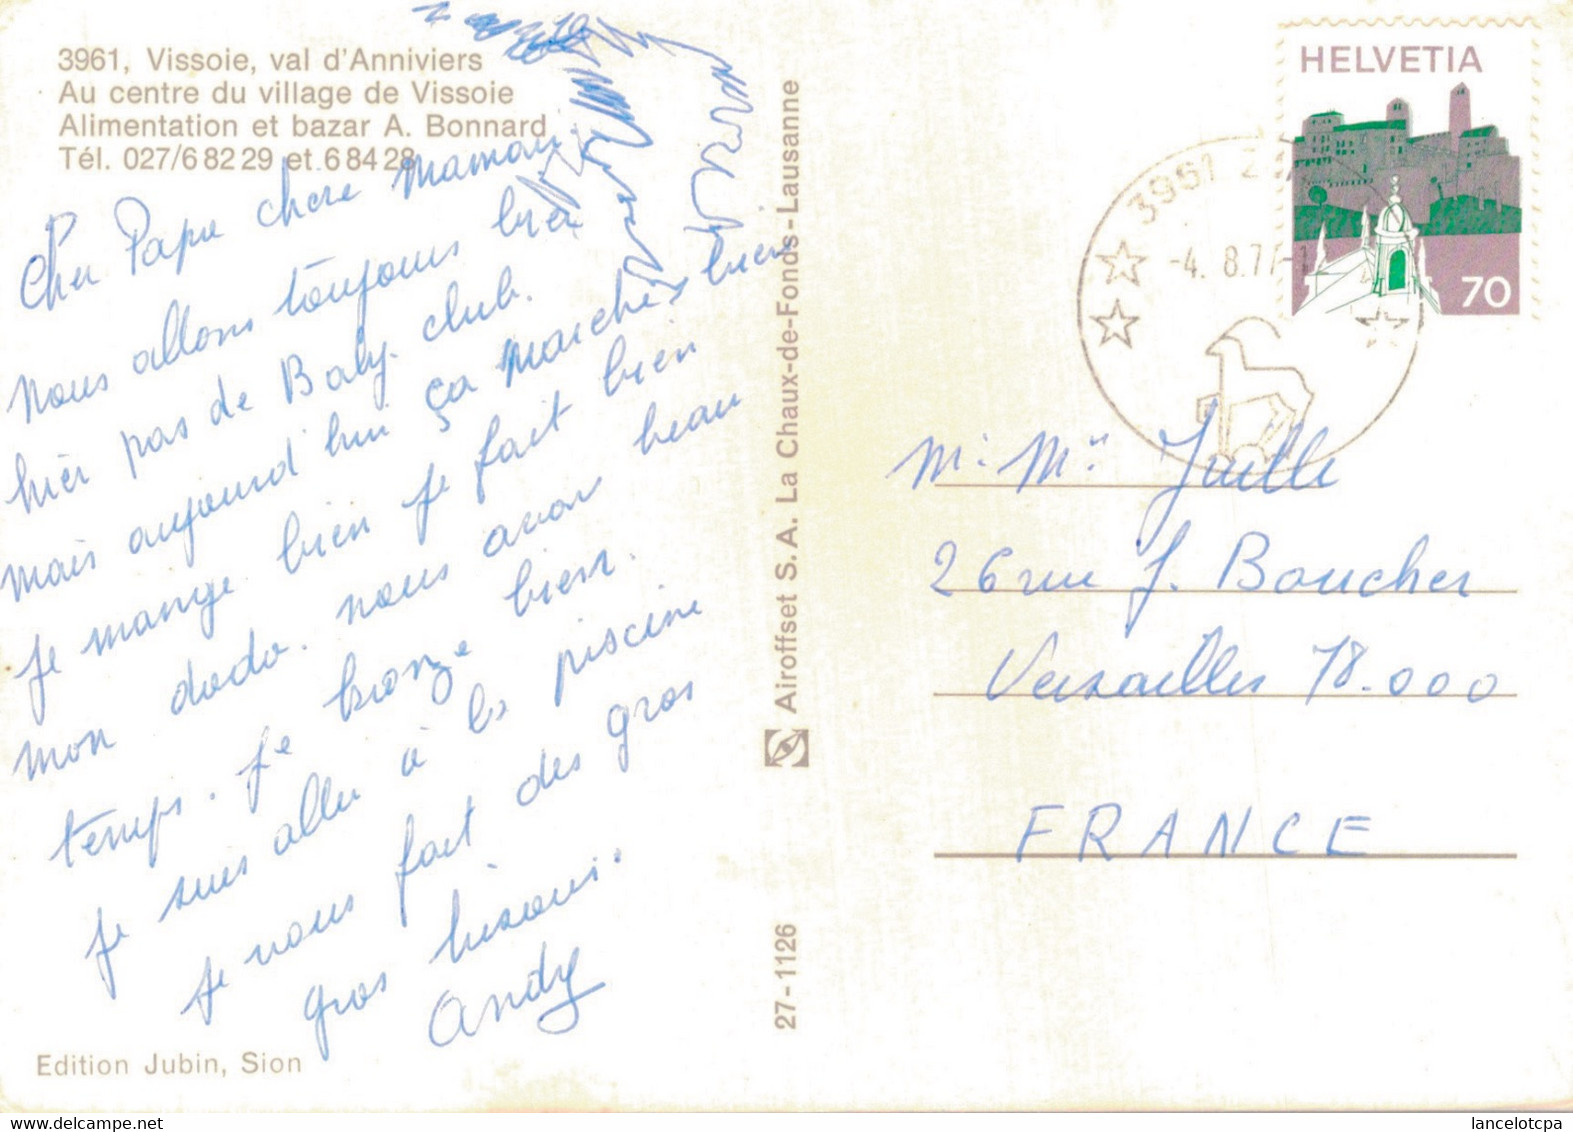 3961, Vissoie, val d'Anniviers
Au centre du village de Vissoie
Alimentation et bazar A. Bonnard
Tél. 027/6 82 29 et 6 84 28
Cher Papa chere maman
nous allons toujours bien
hier pas de Baby-club.
mais aujourd'hui ça marché bien
Je mange bien je fait bien
mon dodo. nous avons beau
temps. Je bronze bien.
Je suis aller à la piscine
Je vous fait des gros
gros bisous.
Andy
Edition Jubin, Sion
27-1126
Airoffset S.A. La Chaux-de-Fonds-Lausanne
HELVETIA
70
3961
-4. 8.7
M. Mme Juille
26 rue J. Boucher
Versailles 78.000
FRANCE
lancelotcpa